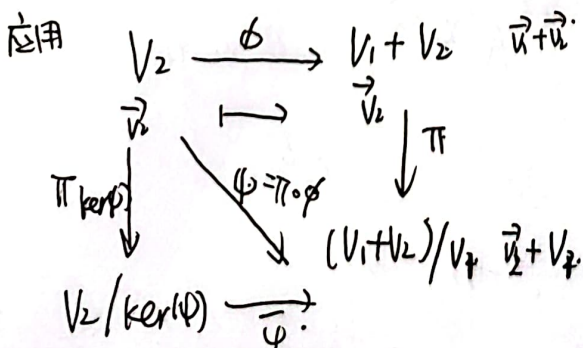 应用
V₂ —ϕ→ V₁ + V₂ \vec{v}₁+\vec{v}₂
\vec{v}₂ ↦ \vec{v}₂
π_{ker(φ)} φ=π∘ϕ π
(V₁+V₂)/V₁ \vec{v}₂+V₁.
V₂/ker(φ) —\bar{φ}→